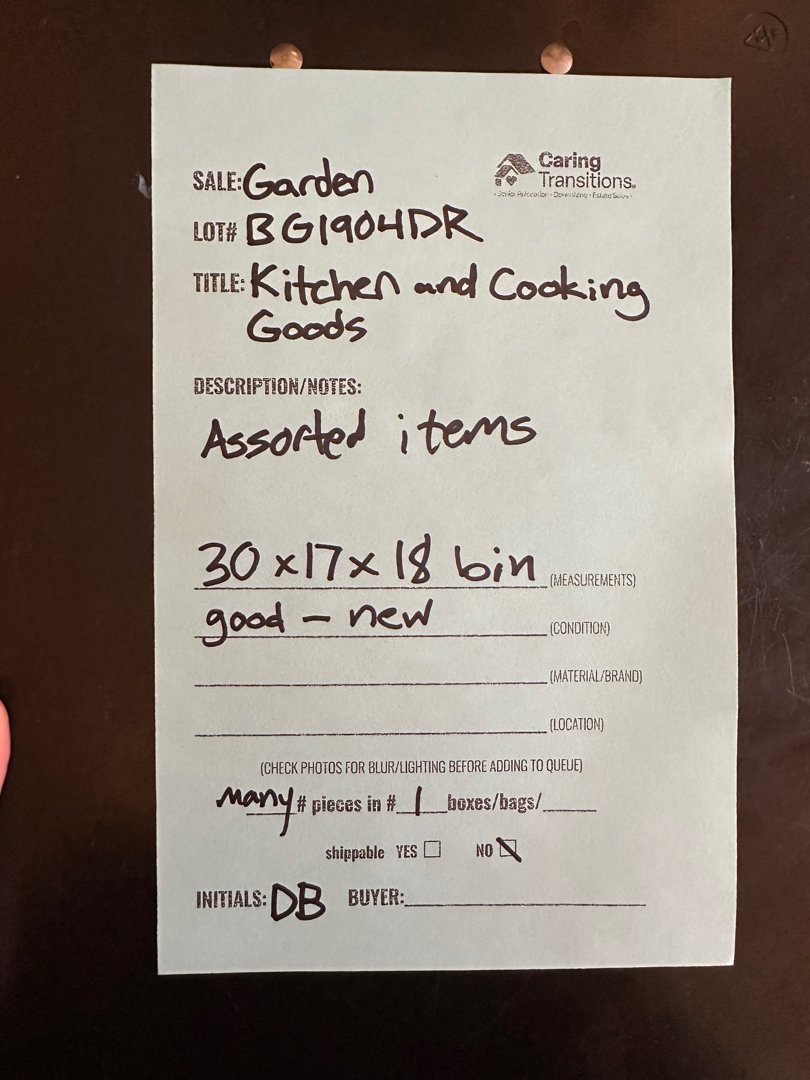 Caring
Transitions.
- Senior Relocation - Downsizing - Estate Sales -
SALE: Garden
LOT# BG1904DR
TITLE: Kitchen and Cooking
Goods
DESCRIPTION/NOTES:
Assorted items
30 x 17 x 18 bin (MEASUREMENTS)
good - new (CONDITION)
(MATERIAL/BRAND)
(LOCATION)
(CHECK PHOTOS FOR BLUR/LIGHTING BEFORE ADDING TO QUEUE)
many # pieces in # 1 boxes/bags/
shippable YES NO
INITIALS: DB BUYER: